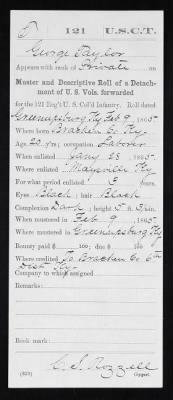 T 121 U.S.C.T.
George Taylor
Appears with rank of Private on
Muster and Descriptive Roll of a Detach-
ment of U. S. Vols. forwarded
for the 121 Reg't U. S. Col'd Infantry. Roll dated
Greenupsburg Ky Feb 9, 1865.
Where born Bracken Co. Ky
Age 20 y'rs; occupation Laborer
When enlisted Jany 28, 1865.
Where enlisted Maysville Ky
For what period enlisted 3 years.
Eyes Black; hair Black
Complexion Dark; height 5 ft. in.
When mustered in Feb 9, 1865.
Where mustered in Greenupsburg Ky
Bounty paid $ 100; due $ 100
Where credited To Bracken Co. 6th
Dist Ky
Company to which assigned
Remarks:
Book mark:
C. S. Rozzell
Copyist.